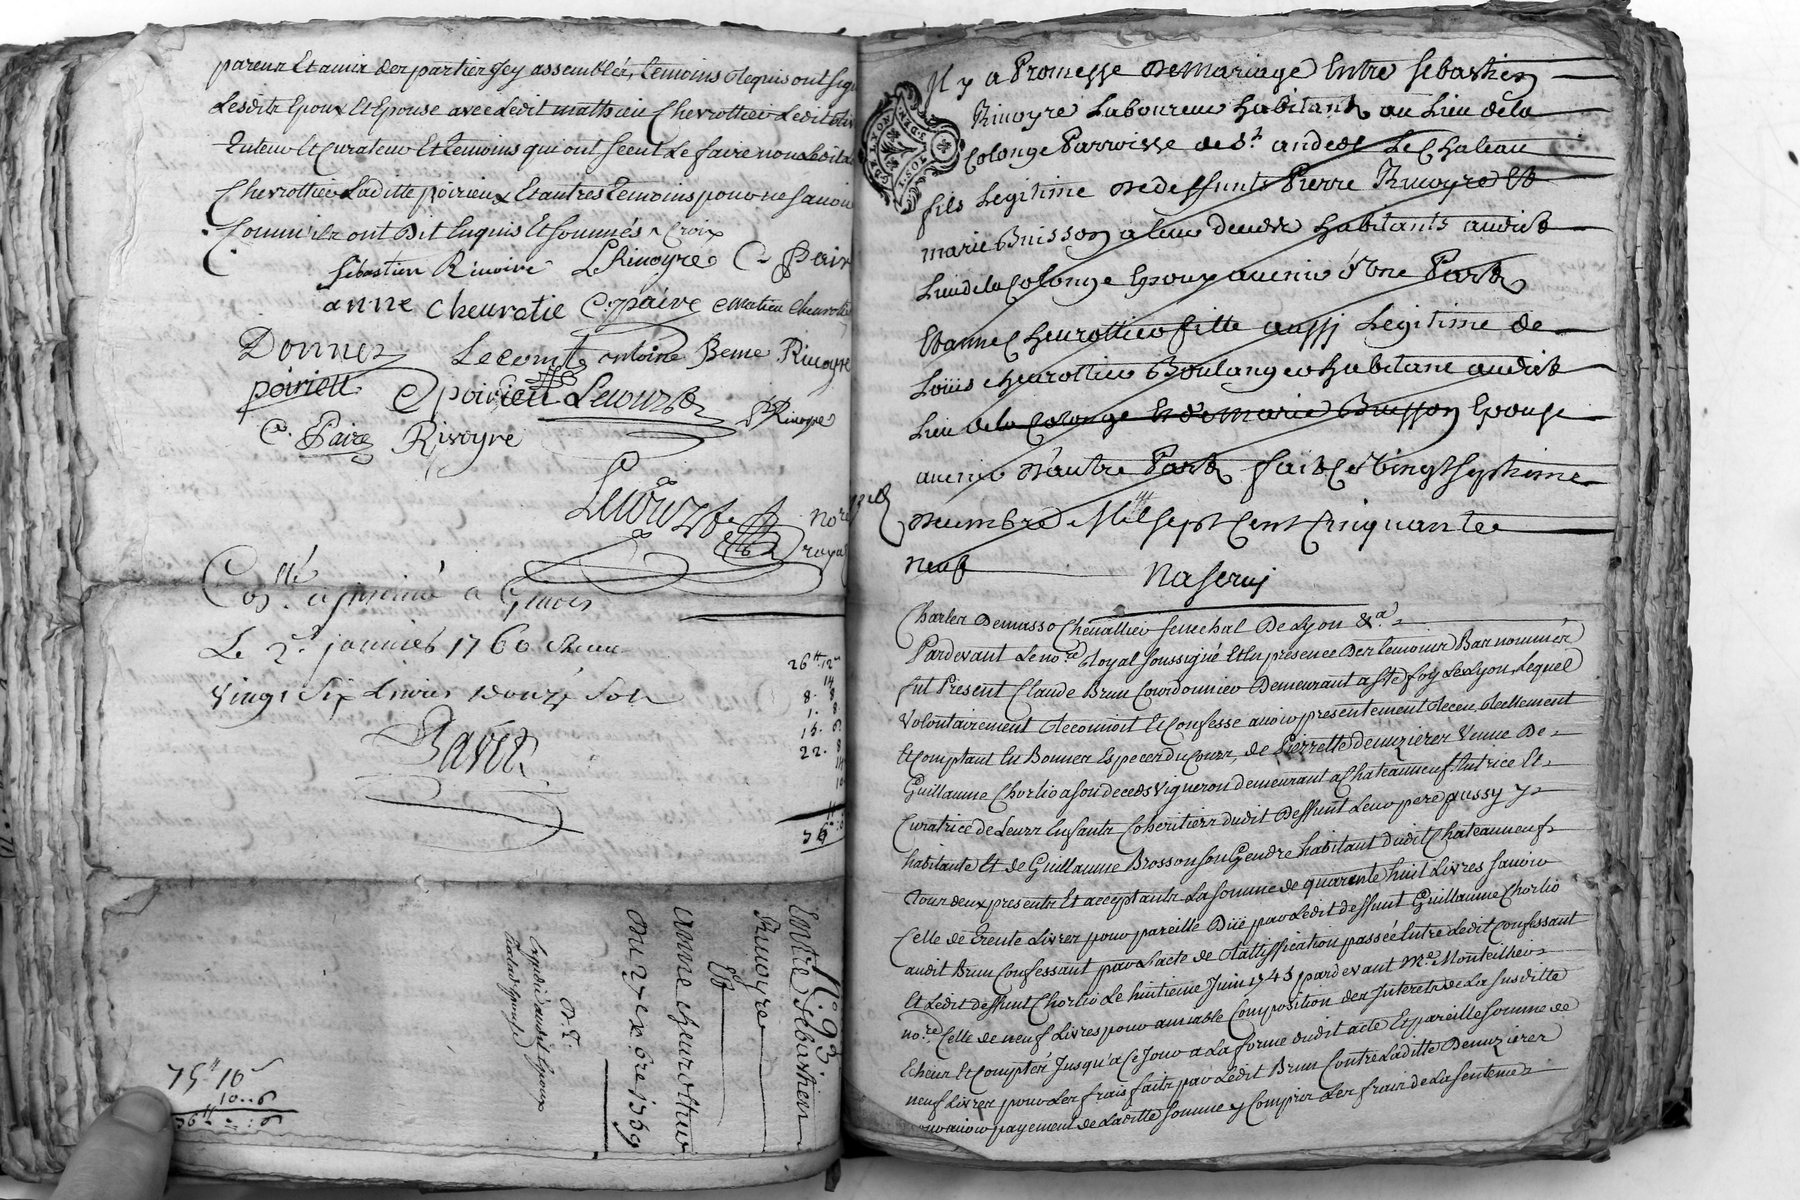 parens Et amis des parties Icy assemblés, temoins Requis ont sig
Lesdits Epoux Et Epouse avec Ledit mathieu Chevrottier Ledit
Tuteur Et Curateur Et temoins qui ont sceut Le faire non Ledit
Chevrottier Laditte poirieux Et autres temoins pour ne Savoir
Comm'ils ont Dit Enquis Et sommés
Sébastien Rivoire LRivoyre C. Paire
anne chevrotie C. paire matieu chevrotie
Donnez Lecomte antoine Beme Rivoyre
poirieu C poirieu
C. Paire Rivoyre P Rivoyre
Not.re
royal
Con.llé a Givors
Le 2.e janvier 1760 Receu
vingt Six Livres douze Sols
Bavet
26tt 12s
14
8. 8
1. 8
15. 6
22. 8
N.o 93
Entre Sebastien
Rivoyre
Et
anne chevrottier
Du 27 xbre 1759
Expedié audit Epoux
75tt 16s
10..6
76tt..6
G. DE LYON
Il y a Promesse de Mariage Entre Sebastien
Rivoyre Laboureur habitant au Lieu dela
Colonge Parroisse de St andeol Le Chateau
fils Legitime de deffunts Pierre Rivoyre Et
marie Buisson a leur deceds habitants audit
Lieu dela Colonge Epoux avenir d'Une Part
Et anne Chevrottier fille aussy Legitime de
Loüis chevrottier Boulanger habitant audit
Lieu dela Colonge Et de Marie Buisson Epouse
avenir d'autre Part fait Ce vingt Septieme
decembre Mil Sept Cent Cinquante
neuf
Naserij
Charles Demasso Chevallier Senechal De Lyon &a.
Pardevant Le no.re Royal Soussigné Et En presence Des temoins Bas nommés
fut Present Claude Brun Courdonnier Demeurant a Ste foÿ Les Lyon, Lequel
Volontairement Reconnoit Et Confesse avoir presentement Receu, Réellement
Et Comptant En Bonnes Especes du Cours, de Pierrette Demuzieres Veuve De
Guillaume Chorlio a son deceds Vigneron demeurant a Chateauneuf. tutrice Et
Curatrice de Leurs Enfants Coheritiers dudit Deffunt Leur pere aussy y
habitante Et de Guillaume Brosson son Gendre habitant dudit Chateauneuf
Tous deux presents Et acceptants La Somme de quarente huit Livres Savoir
Celle de Trente Livres pour pareille Düe par Ledit deffunt Guillaume Chorlio
audit Brun Confessant par L'acte de Rattiffication passée Entre Ledit Confessant
Et Ledit deffunt Chorlio Le huitieme Juin 1745 pardevant M.e Monteilhier
no.re Celle de neuf Livres pour amiable Composition des Interets de La Susditte
Echeus Et Comptés Jusqu'a Ce Jour a La forme dudit acte Et pareille Somme de
neuf Livres pour Les frais faits par Ledit Brun Contre Laditte Demuzieres
pour avoir payement de Laditte Somme y Compris Les frais de La Sentence